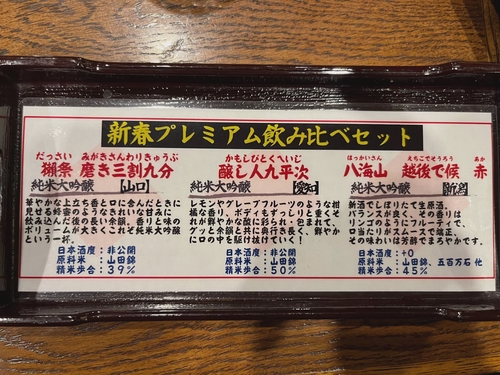 新春プレミアム飲み比べセット
だっさい みがきさんわりきゅうぶ
獺祭 磨き三割九分
純米大吟醸 【山口】
華やかな上立ち香と口に含んだときに
見せる蜂蜜のようなきれいな甘みに
飲み込んだ後の長い余韻、
ボリュームが大きく
という一杯。
日本酒度:非公開
原料米 :山田錦
精米歩合:39%
かもしびとくへいじ
醸し人九平次
純米大吟醸 【愛知】
レモンやグレープフルーツのような柑
橘の香り、ボディもずっしり重くて
それが鮮やかな酸に包まれて、
グッと余韻と共に奥行き長く、鮮やか
に口の中を駆け抜けていく!
日本酒度:非公開
原料米 :山田錦
精米歩合:50%
はっかいさん えちごでそうろう あか
八海山 越後で候 赤
純米大吟醸 【新潟】
新酒でしぼりたて生原酒。
バランスが良く、その香りは
リンゴのようにフルーティで、
口当たりがスムースで端正。
その味わいは芳醇でまろやかです。
日本酒度:+0
原料米 :山田錦、五百万石 他
精米歩合:45%